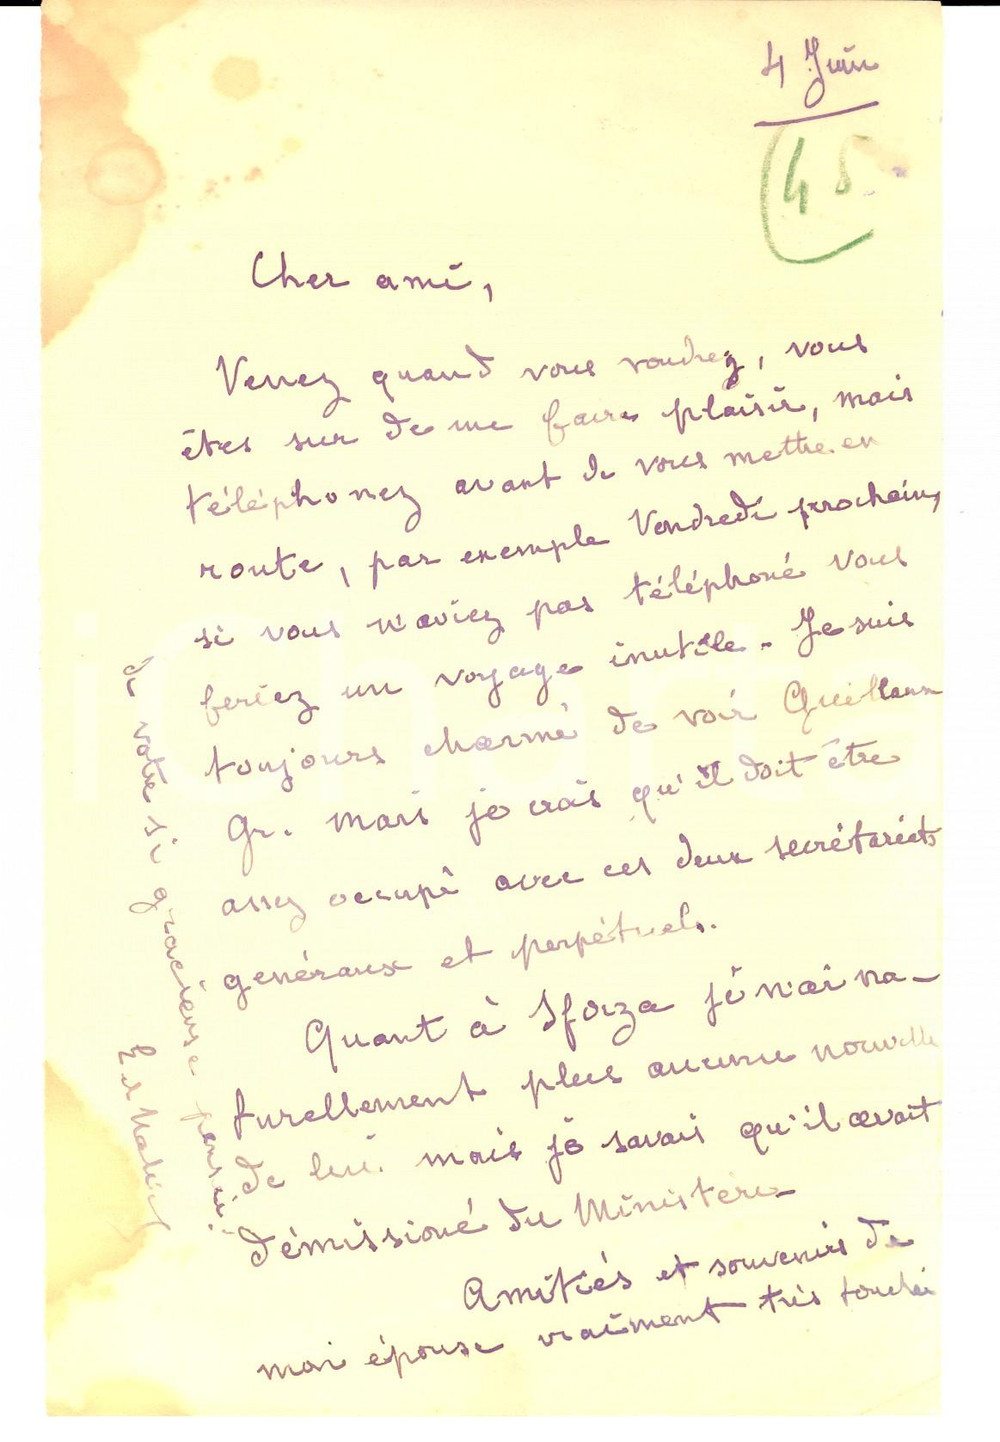 4 Juin
45
Cher ami,
Venez quand vous voudrez, vous
êtes sur de me faire plaisir, mais
téléphonez avant de vous mettre en
route, par exemple Vendredi prochain,
si vous n'aviez pas téléphoné vous
feriez un voyage inutile. Je suis
toujours charmé de voir
Gr. mais je crois qu'il doit être
assez occupé avec ces deux secrétariats
genéraux et perpétuels.
Quant à Sforza je n'ai na-
turellement plus aucune nouvelle
de lui. mais je savais qu'il avait
démissioné du Ministère
Amitiés et souvenirs de
mon épouse vraiment très touchée
de votre si gracieuse pensée.